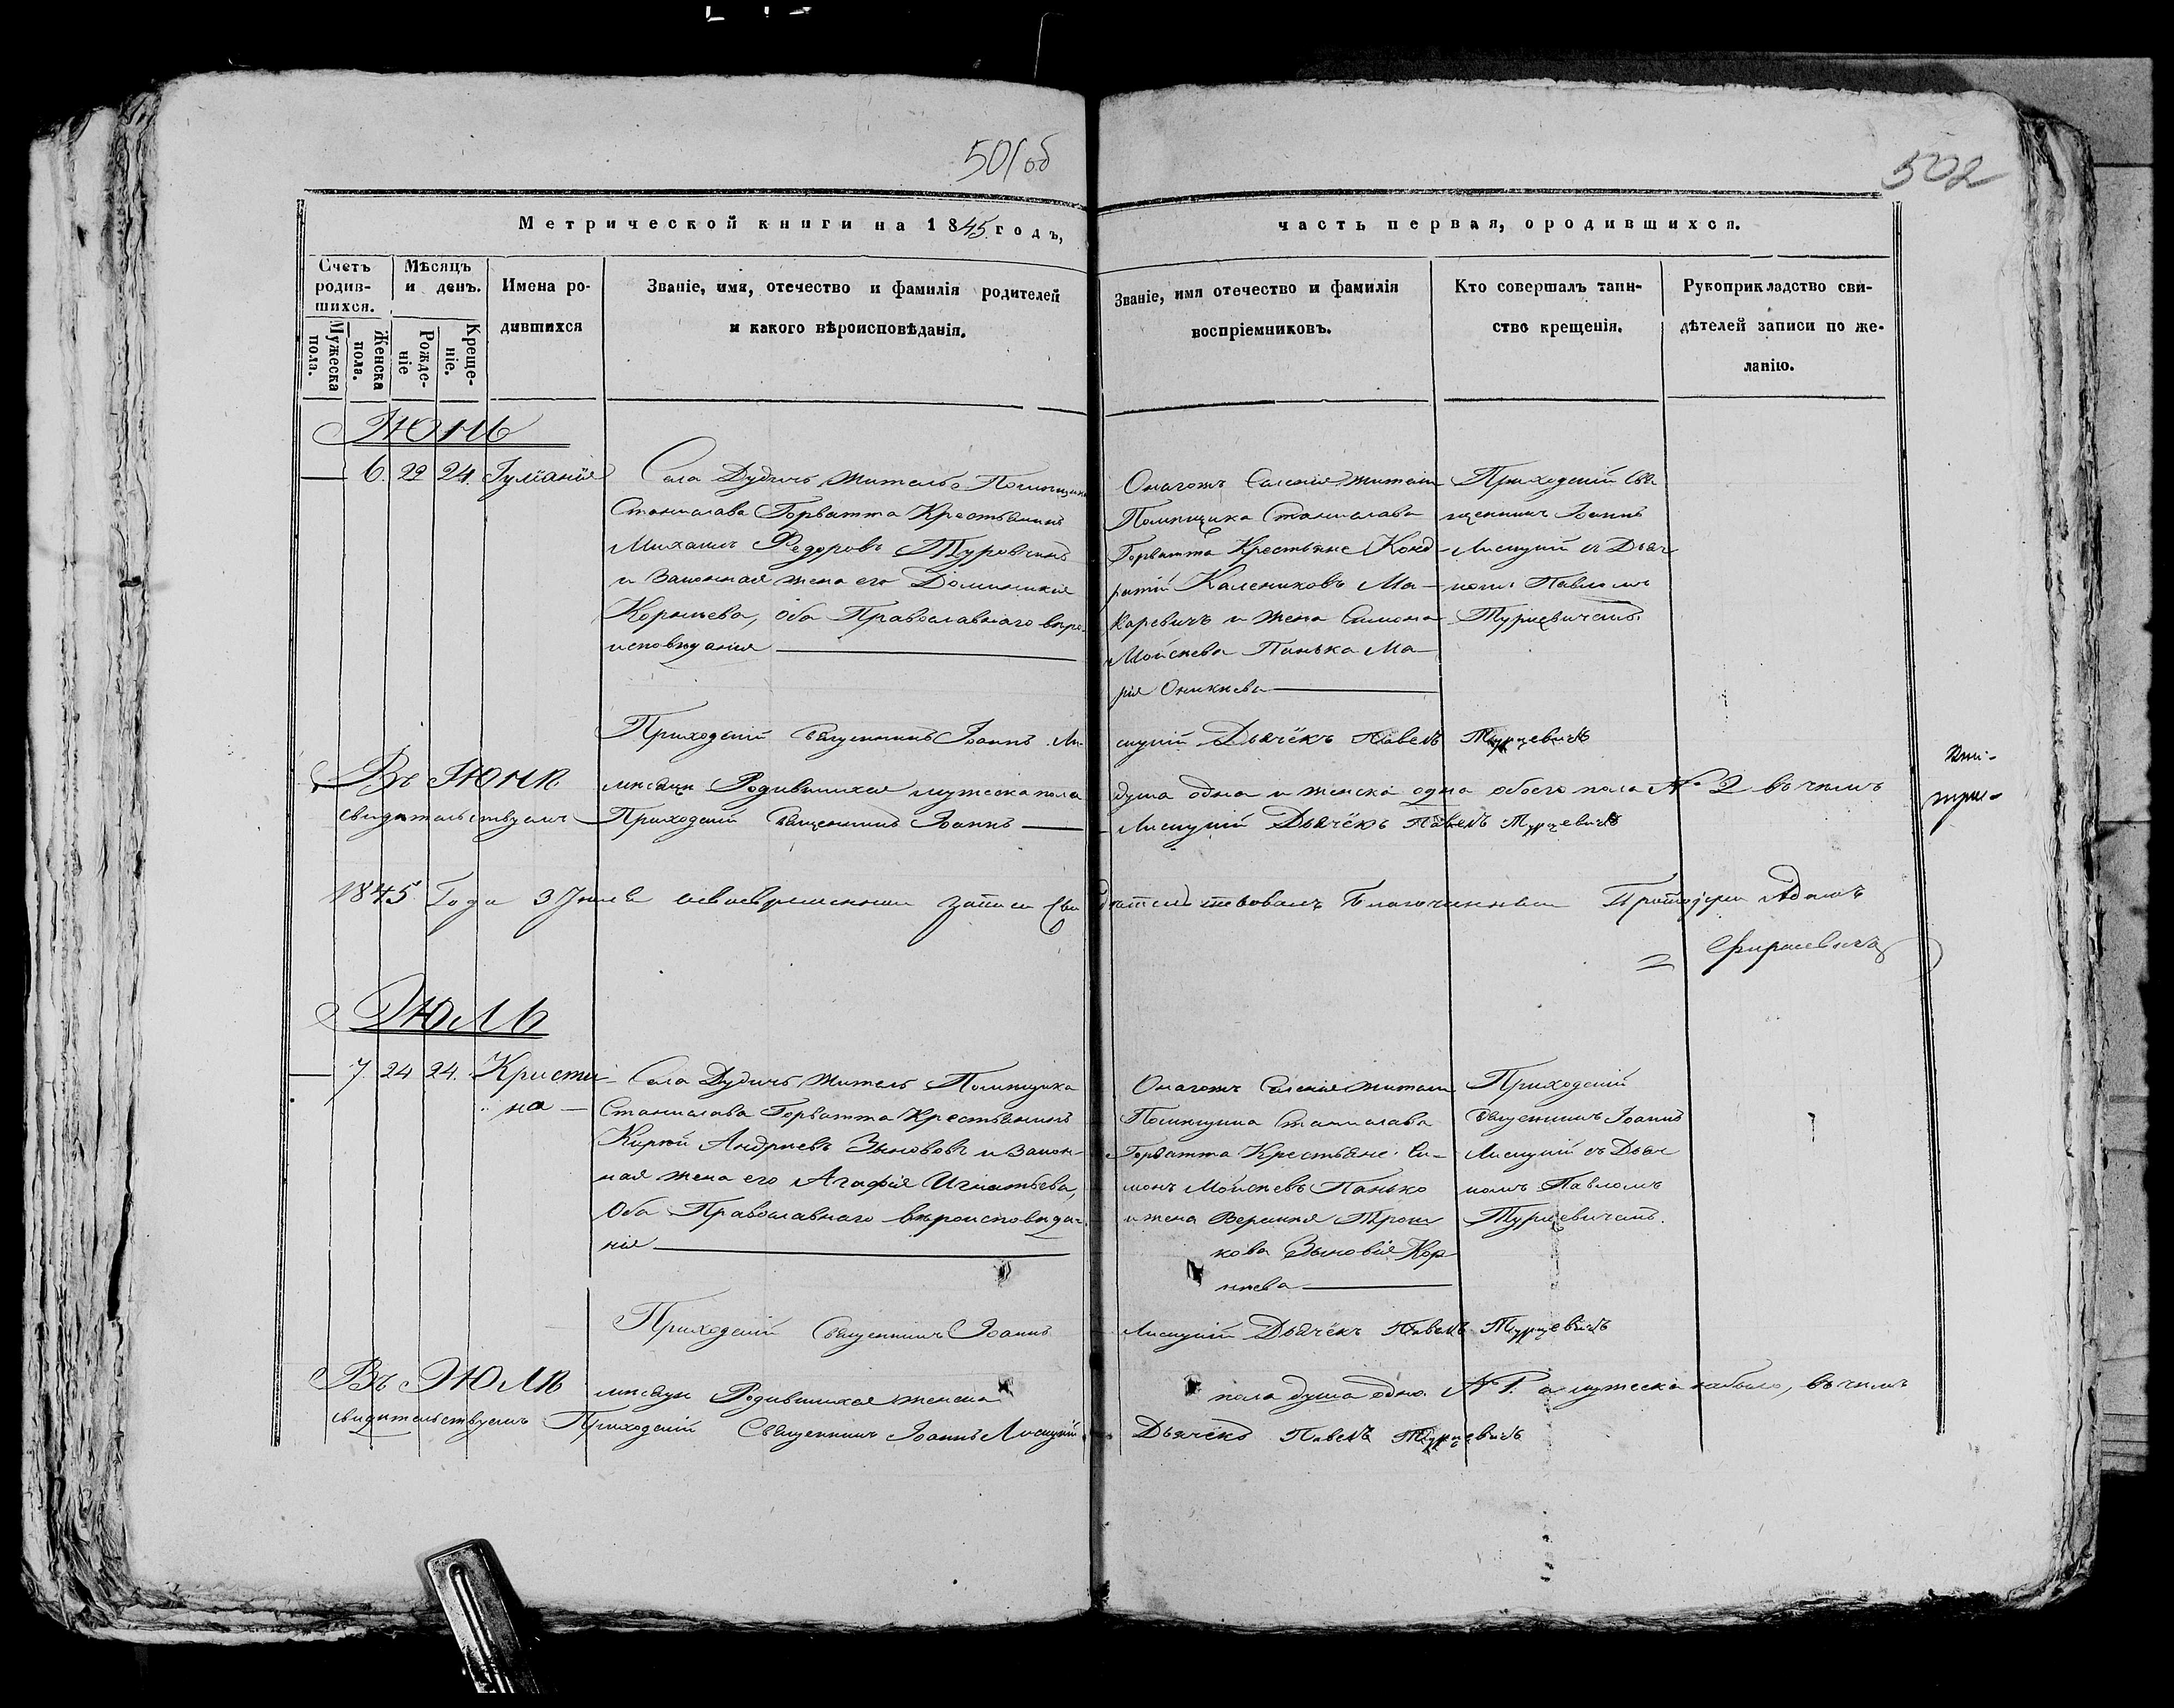 501об
502
Метрической книги на 1845 годъ,
часть первая, ородившихся.
Счетъ родив-шихся.
Мужеска пола.
Женска пола.
Мѣсяцъ и день.
Рожде-ніе
Креще-ніе.
Имена ро-
дившихся
Званіе, имя, отечество и фамилія родителей
и какого вѣроисповѣданія.
Званіе, имя отечество и фамилія
воспріемниковъ.
Кто совершалъ таин-
ство крещенія.
Рукоприкладство сви-
дѣтелей записи по же-
ланію.
Июнь
— 6. 22 24. Іуліанія
Села Дудичъ житель Помѣщика
Станислава Горватта Крестьянинъ
Михаилъ Федоровъ Туровчикъ
и Законная жена его Доминикія
Корнѣева, оба Православнаго вѣро-
исповѣданія
Онагожъ Селенія жители
Помѣщика Станислава
Горватта Крестьяне Конд-
ратій Калениковъ Ма-
каревичъ и жена Симона
Мойсѣева Панька Ма-
рія Оникѣева
Приходскій Свя
щенникъ Іоаннъ
Лисицкій съ Дьяч
комъ Павломъ
Турцевичемъ.
Приходскій Священникъ Іоаннъ Ли-
сицкій Дьячёкъ Павелъ Турцевичъ
Въ Июнѣ мѣсяцѣ Родившихся мужеска пола душа одна и женска одна обоего пола № 2 въ чемъ
свидѣтельствуемъ Приходскій Священникъ Іоаннъ — Лисицкій Дьячёкъ Павелъ Турцевичъ
1845 Года 3 Іюля своевременность записи Свидѣтельствовалъ Благочинный Протоіерей Адамъ
Июль
— 7. 24 24. Кристи-
на —
Села Дудичъ житель Помѣщика
Станислава Горватта Крестьянинъ
Кирѣй Андреевъ Зыновъ и Закон-
ная жена его Агафія Игнатьева,
Оба Православнаго вѣроисповѣда-
нія
Онагожъ Селенія жители
Помѣщика Станислава
Горватта Крестьяне: Си-
монъ Мойсѣевъ Панько
и жена
кова Зыновія Кор-
нѣева
Приходскій
Священникъ Іоаннъ
Лисицкій съ Дьяч
комъ Павломъ
Турцевичемъ.
Приходскій Священникъ Іоаннъ
Лисицкій Дьячёкъ Павелъ Турцевичъ
Въ Июлѣ мѣсяцѣ Родившихся женска пола душа одна № 1. а мужеска небыло, въ чемъ
свидѣтельствуемъ Приходскій Священникъ Іоаннъ Лисицкій
Дьячёкъ Павелъ Турцевичъ